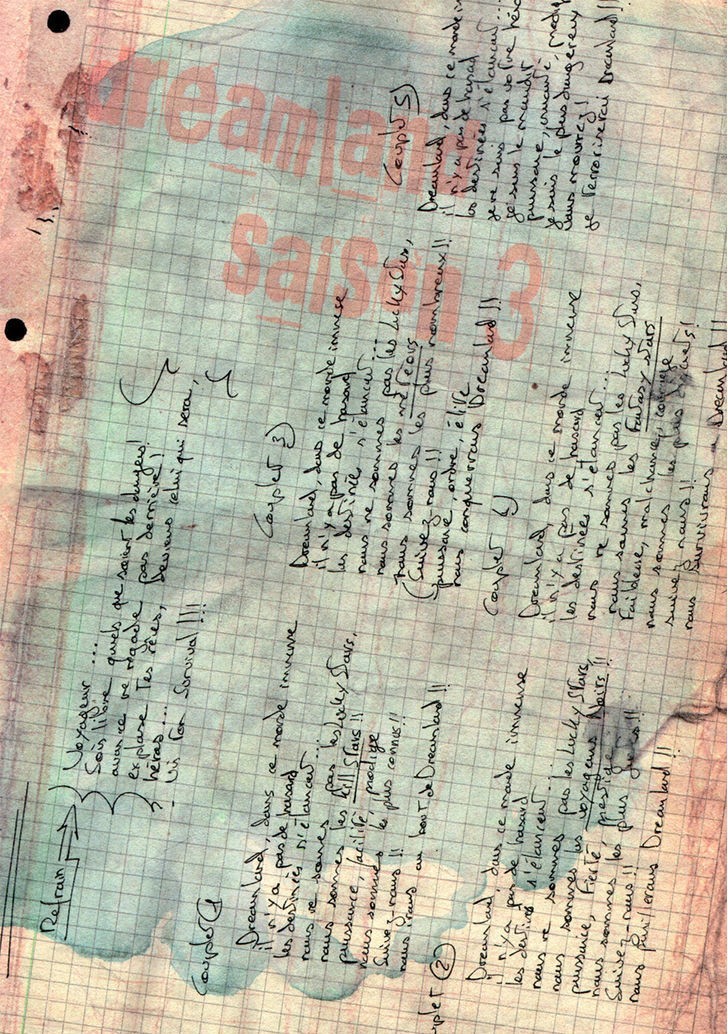 dreamland
saison 3
Refrain
Voyageur ....
Sois libre quels que soient les dangers!
avance ne regarde pas derrière!
explore tes rêves, Deviens celui qui sera,
héros ...
survival!!!!
Couplet 1
Dreamland, dans ce monde immense
il n'y a pas de hasard
les destinées s'élancent ....
nous ne sommes pas les lucky stars,
nous sommes les kill stars!!
puissance, facilité, prodige
nous sommes les plus connus!!
Suivez nous!!
nous irons au bout de Dreamland!!
uplet 2
Dreamland, dans ce monde immense
il n'y a pas de hasard
les destinées s'élancent ....
nous ne sommes pas les lucky stars,
nous sommes les voyageurs Noirs!!
puissance, Fierté, prestige
nous sommes les plus !!
Suivez-nous!!
nous Dreamland!!
Couplet 3
Dreamland, dans ce monde immense
il n'y a pas de hasard
les destinées s'élancent ....
nous ne sommes pas les lucky stars,
nous sommes les
nous sommes les plus nombreux!!
Suivez nous!!
puissance, ordre, élite
nous conquerrons Dreamland!!
Couplet 4
Dreamland, dans ce monde immense
il n'y a pas de hasard
les destinées s'élancent ....
nous ne sommes pas les lucky stars,
nous sommes les Fantasy stars
Faiblesse, malchance, courage
nous sommes les plus
suivez nous!!
nous survivrons a Dreamland!!
Couplet 5
Dreamland, dans ce monde i
il n'y a pas de hasard
les destinées s'élancent ....
je ne suis pas votre héro
je suis le maudit
puissance, cruauté,
je suis le plus dangereux
vous mourrez!
je terroriserai Dreamland!!